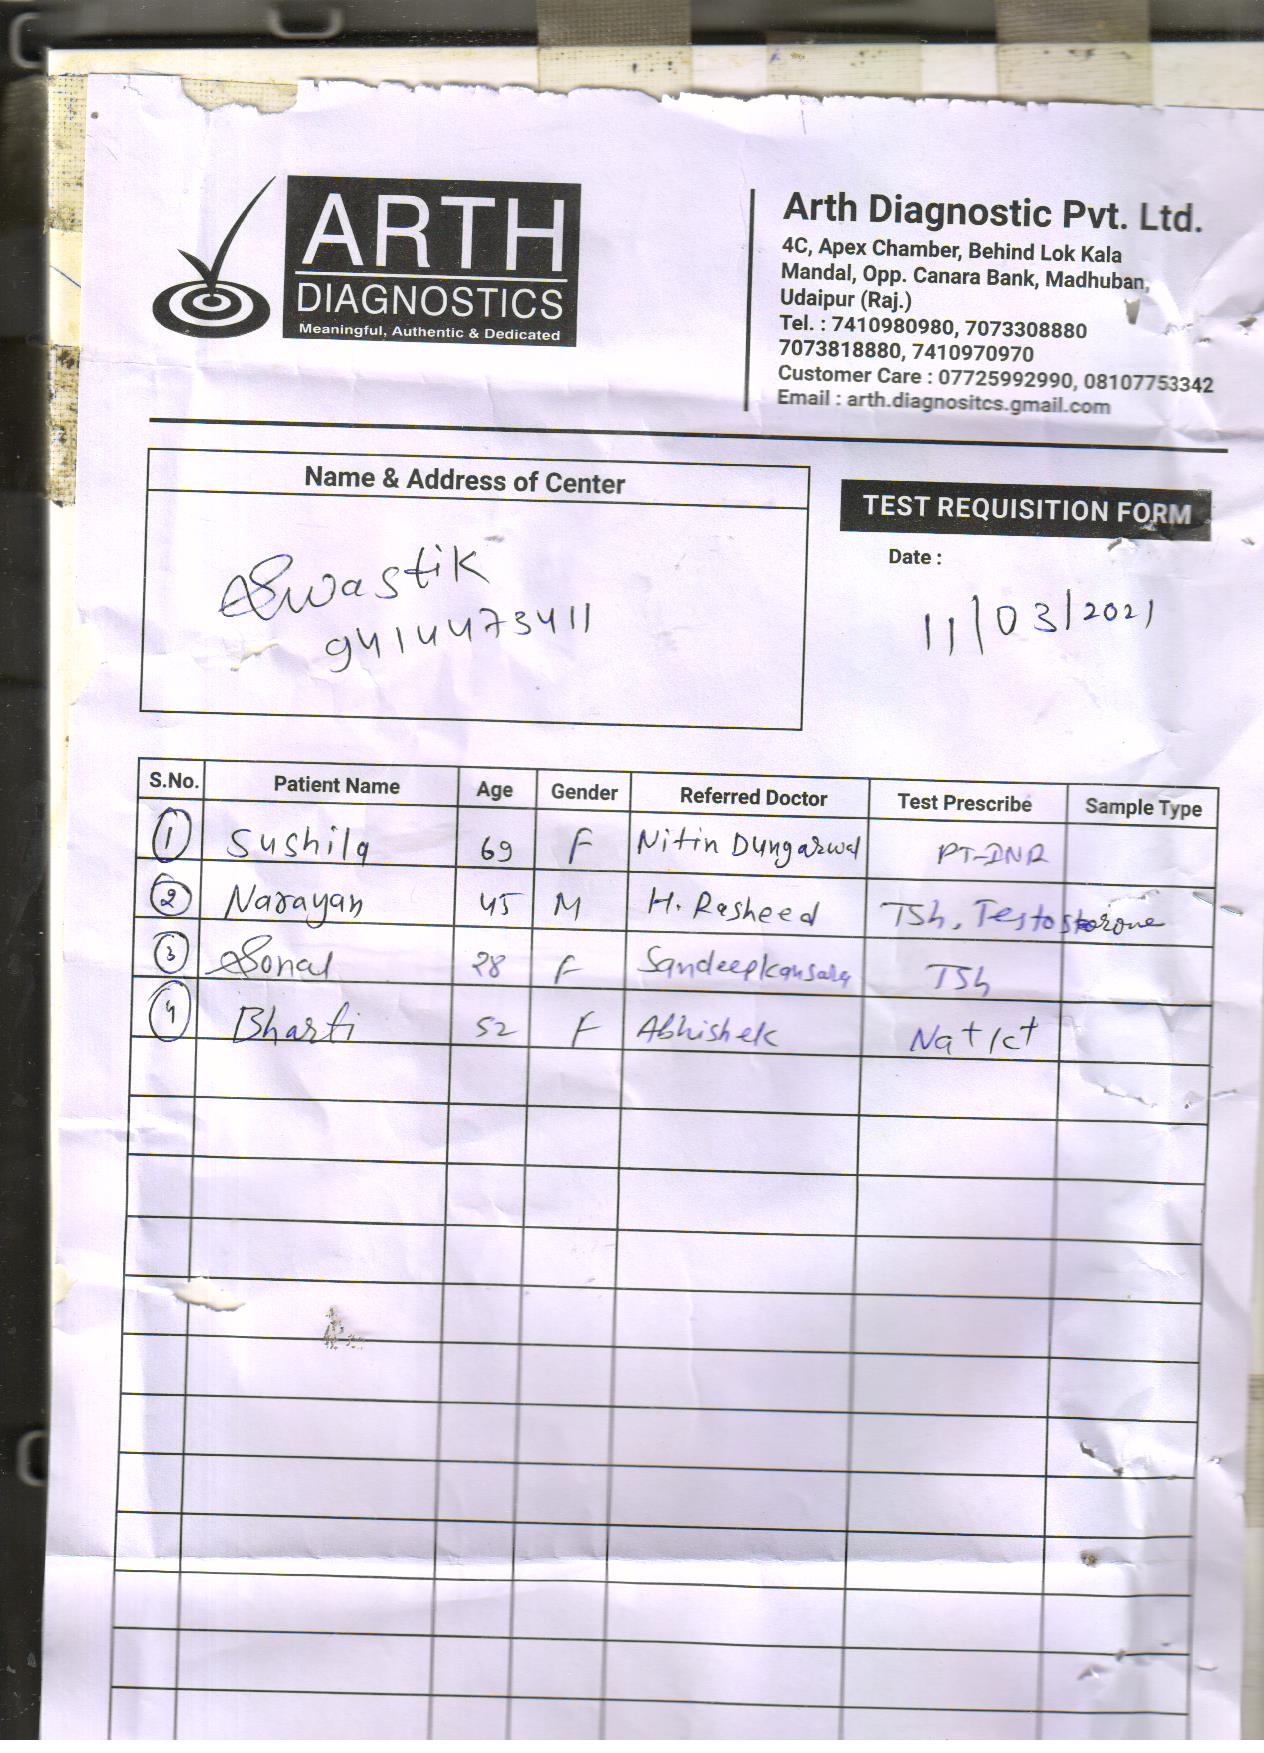 ARTH
DIAGNOSTICS
Meaningful, Authentic & Dedicated
Arth Diagnostic Pvt. Ltd.
4C, Apex Chamber, Behind Lok Kala
Mandal, Opp. Canara Bank, Madhuban,
Udaipur (Raj.)
Tel. : 7410980980, 7073308880
7073818880, 7410970970
Customer Care : 07725992990, 08107753342
Email : arth.diagnositcs.gmail.com
Name & Address of Center
Swastik
9414473411
TEST REQUISITION FORM
Date :
11/03/2021
S.No. Patient Name Age Gender Referred Doctor Test Prescribe Sample Type
1 Sushila 69 F Nitin Dungarwal PT-INR
2 Narayan 45 M H. Rasheed Tsh, Testosterone
3 Sonal 28 F Sandeep kansara Tsh
4 Bharti 52 F Abhishek Na+/K+